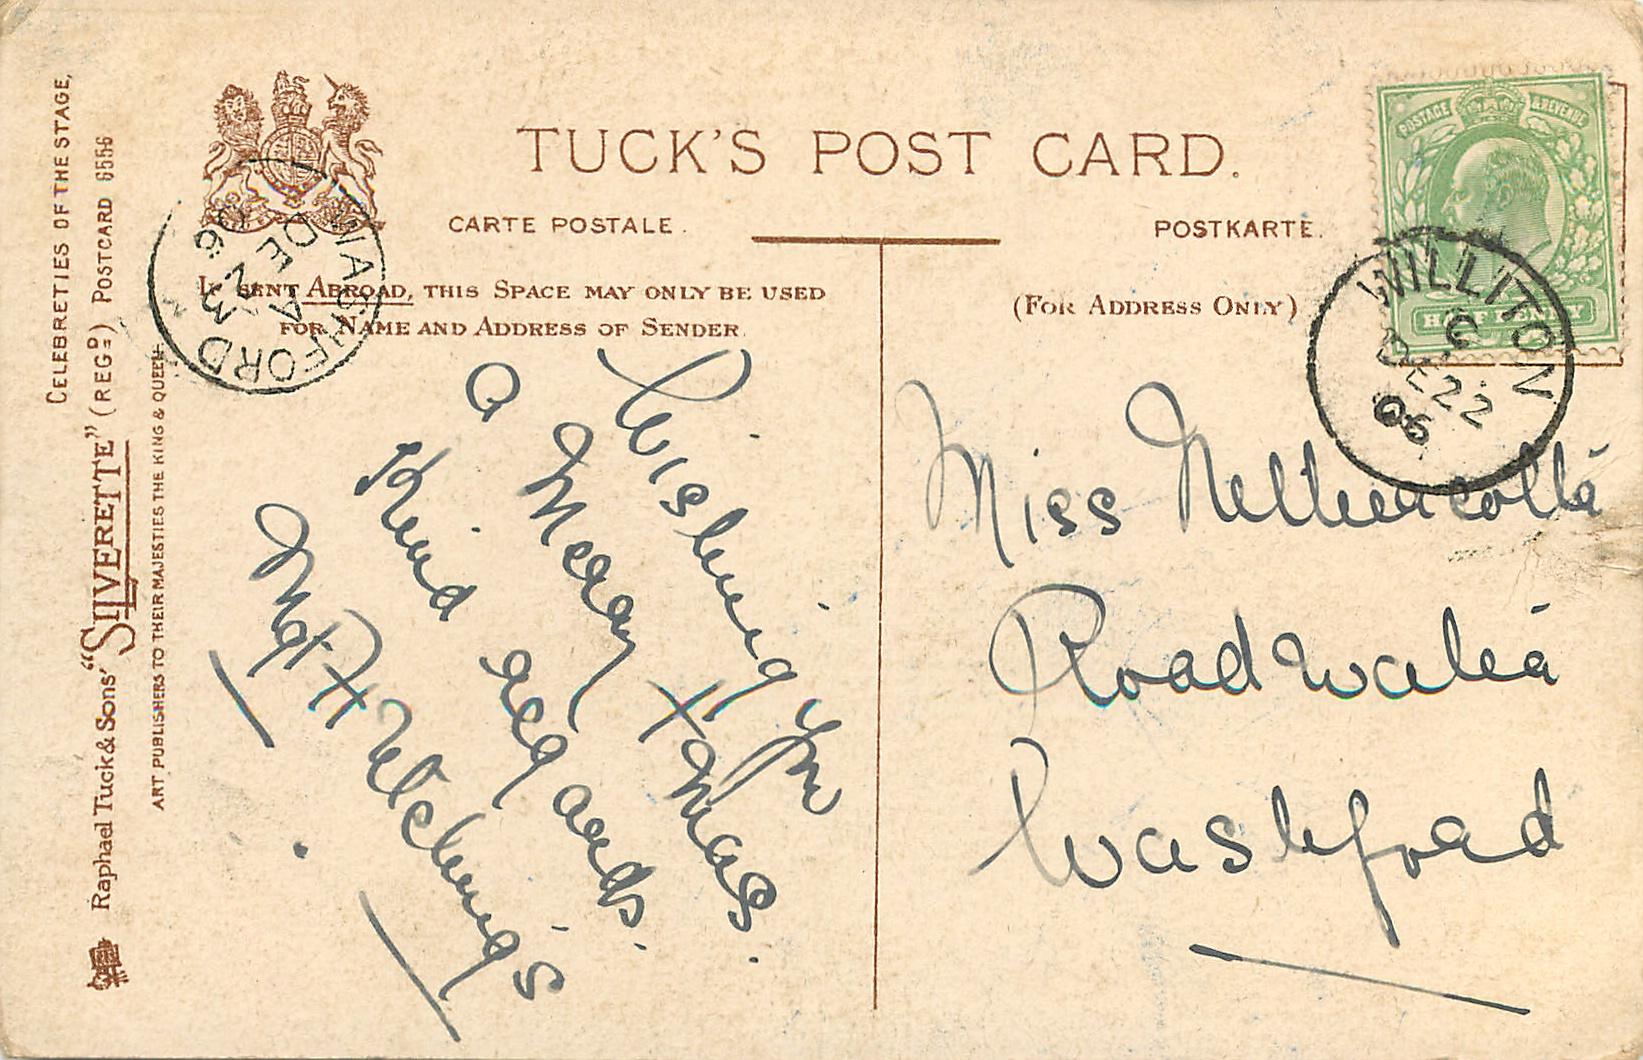 CELEBRETIES OF THE STAGE,
Raphael Tuck & Sons' "SILVERETTE" (REGD) POSTCARD 6556
ART PUBLISHERS TO THEIR MAJESTIES THE KING & QUEEN
TUCK'S POST CARD.
CARTE POSTALE.
POSTKARTE.
IF SENT ABROAD, THIS SPACE MAY ONLY BE USED
FOR NAME AND ADDRESS OF SENDER
(FOR ADDRESS ONLY)
WASHFORD
A
DE 23
06
POSTAGE & REVENUE
HALF PENNY
WILLITON
C
DE 22
06
Wishing you
a Merry Xmas.
Kind regards.
Miss
Roadwater
Washford